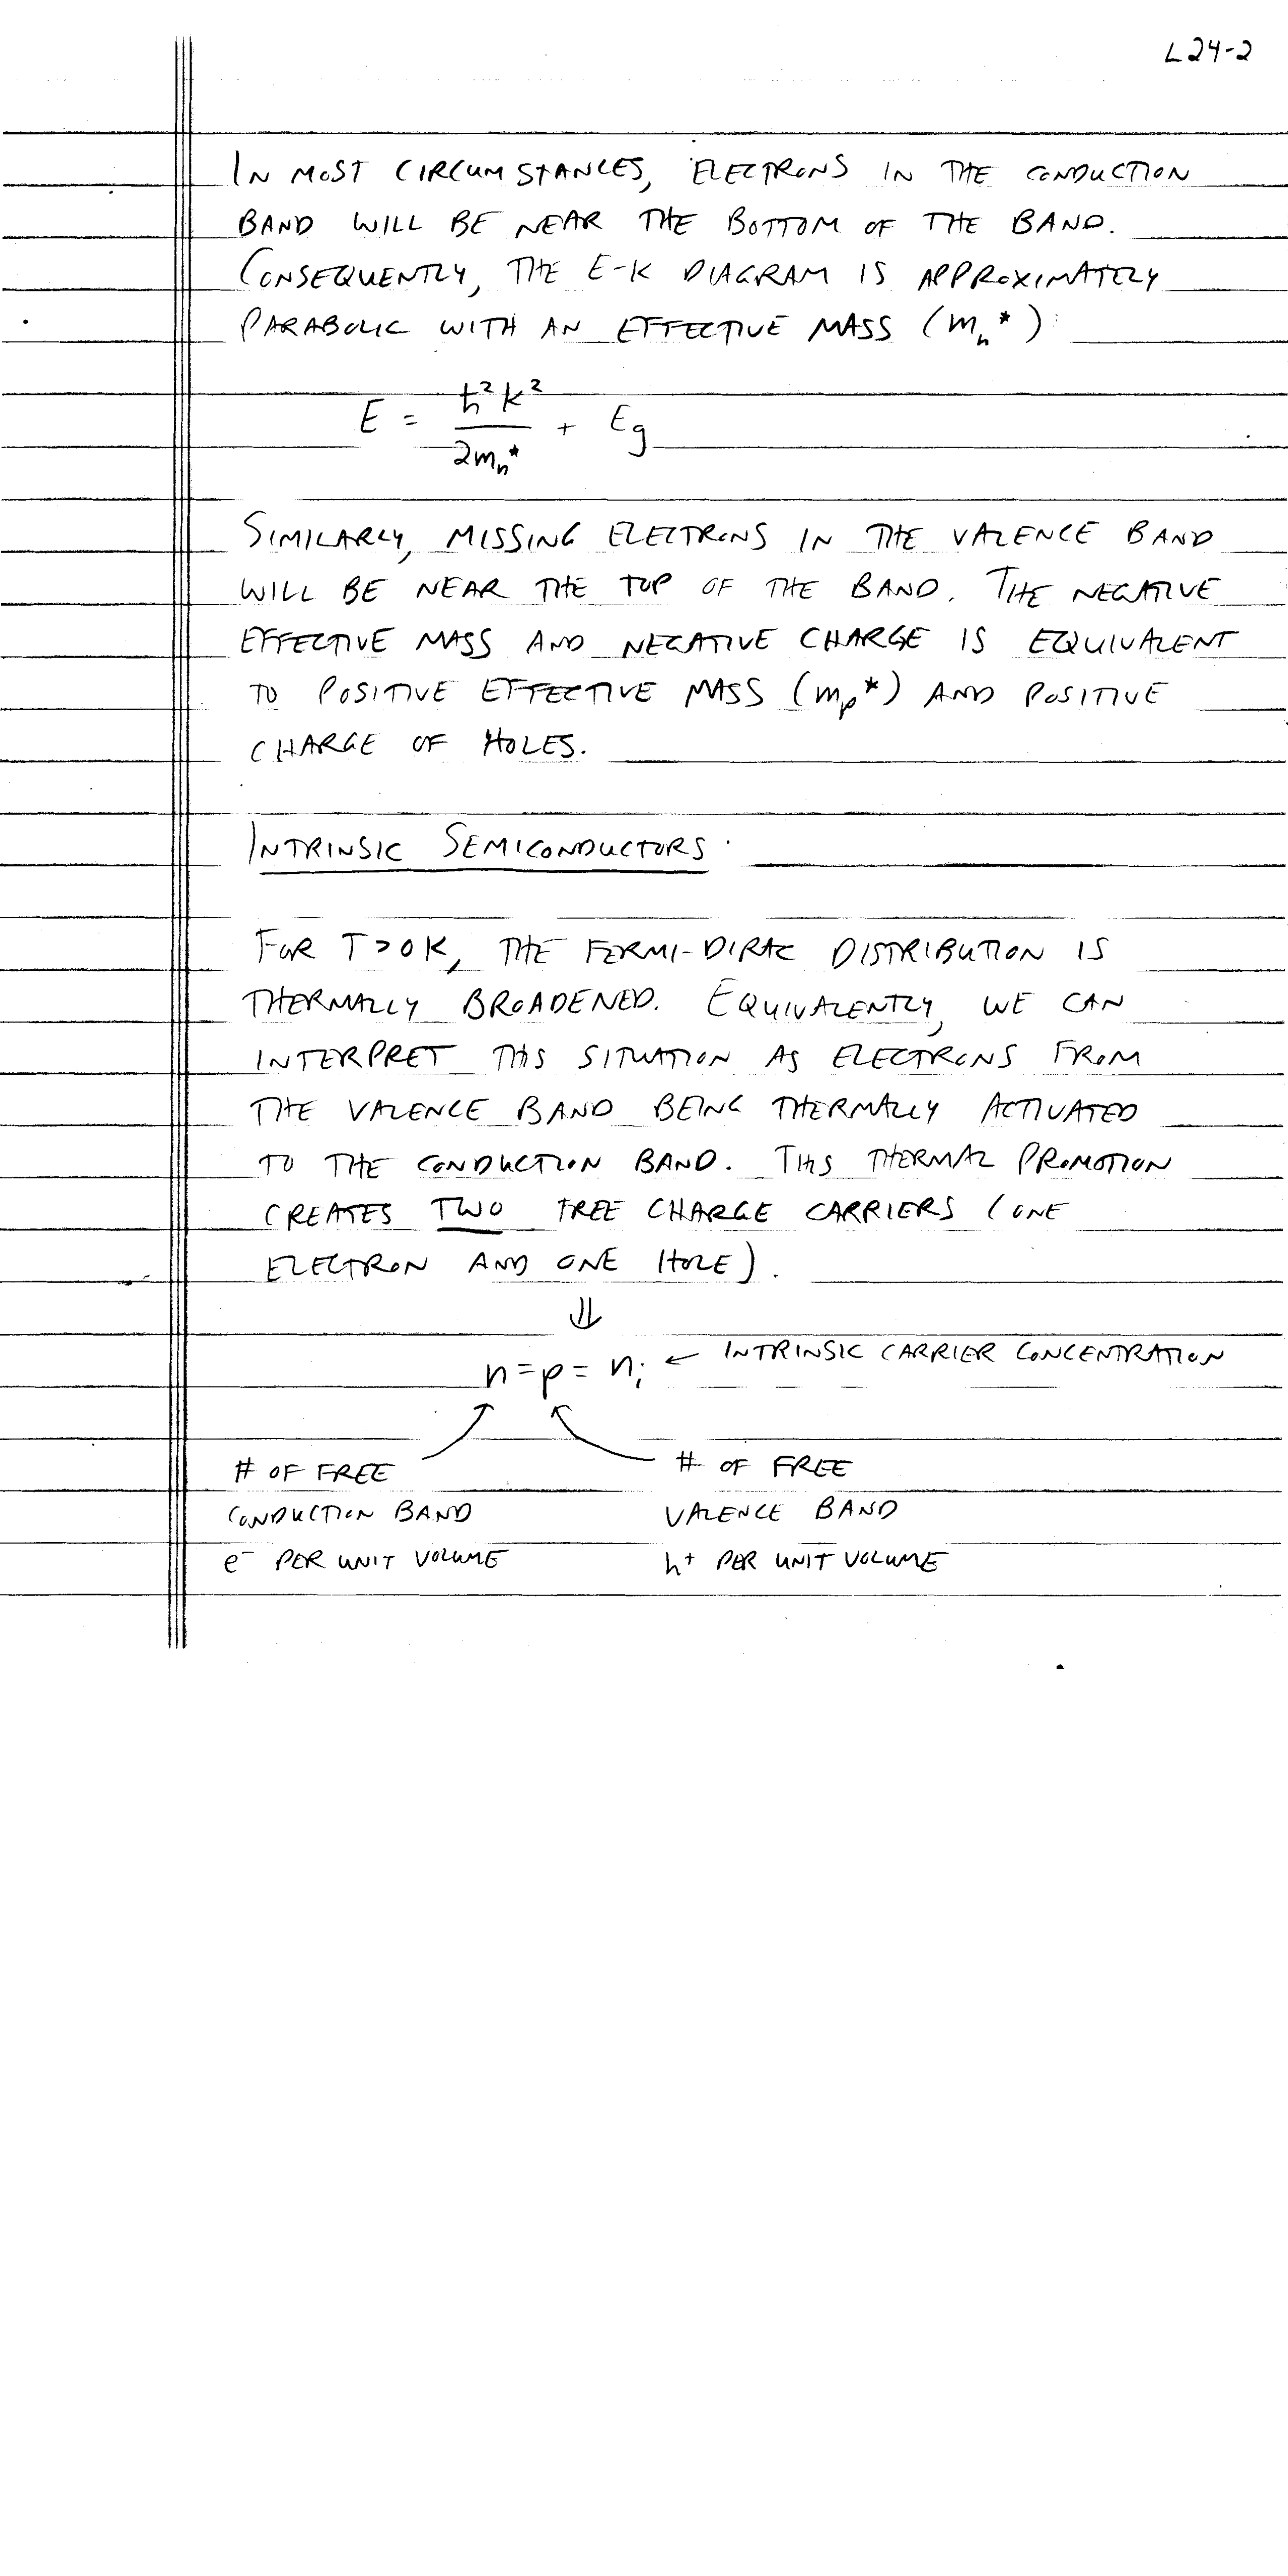 L24-2
IN MOST CIRCUMSTANCES, ELECTRONS IN THE CONDUCTION
BAND WILL BE NEAR THE BOTTOM OF THE BAND.
CONSEQUENTLY, THE E-K DIAGRAM IS APPROXIMATELY
PARABOLIC WITH AN EFFECTIVE MASS (mₙ*):
E = ħ²k² / 2mₙ* + Eg
SIMILARLY, MISSING ELECTRONS IN THE VALENCE BAND
WILL BE NEAR THE TOP OF THE BAND. THE NEGATIVE
EFFECTIVE MASS AND NEGATIVE CHARGE IS EQUIVALENT
TO POSITIVE EFFECTIVE MASS (mₚ*) AND POSITIVE
CHARGE OF HOLES.
INTRINSIC SEMICONDUCTORS:
FOR T>0K, THE FERMI-DIRAC DISTRIBUTION IS
THERMALLY BROADENED. EQUIVALENTLY, WE CAN
INTERPRET THIS SITUATION AS ELECTRONS FROM
THE VALENCE BAND BEING THERMALLY ACTIVATED
TO THE CONDUCTION BAND. THIS THERMAL PROMOTION
CREATES TWO FREE CHARGE CARRIERS (ONE
ELECTRON AND ONE HOLE).
⇓
n = p = nᵢ ← INTRINSIC CARRIER CONCENTRATION
# OF FREE
CONDUCTION BAND
e⁻ PER UNIT VOLUME
# OF FREE
VALENCE BAND
h⁺ PER UNIT VOLUME